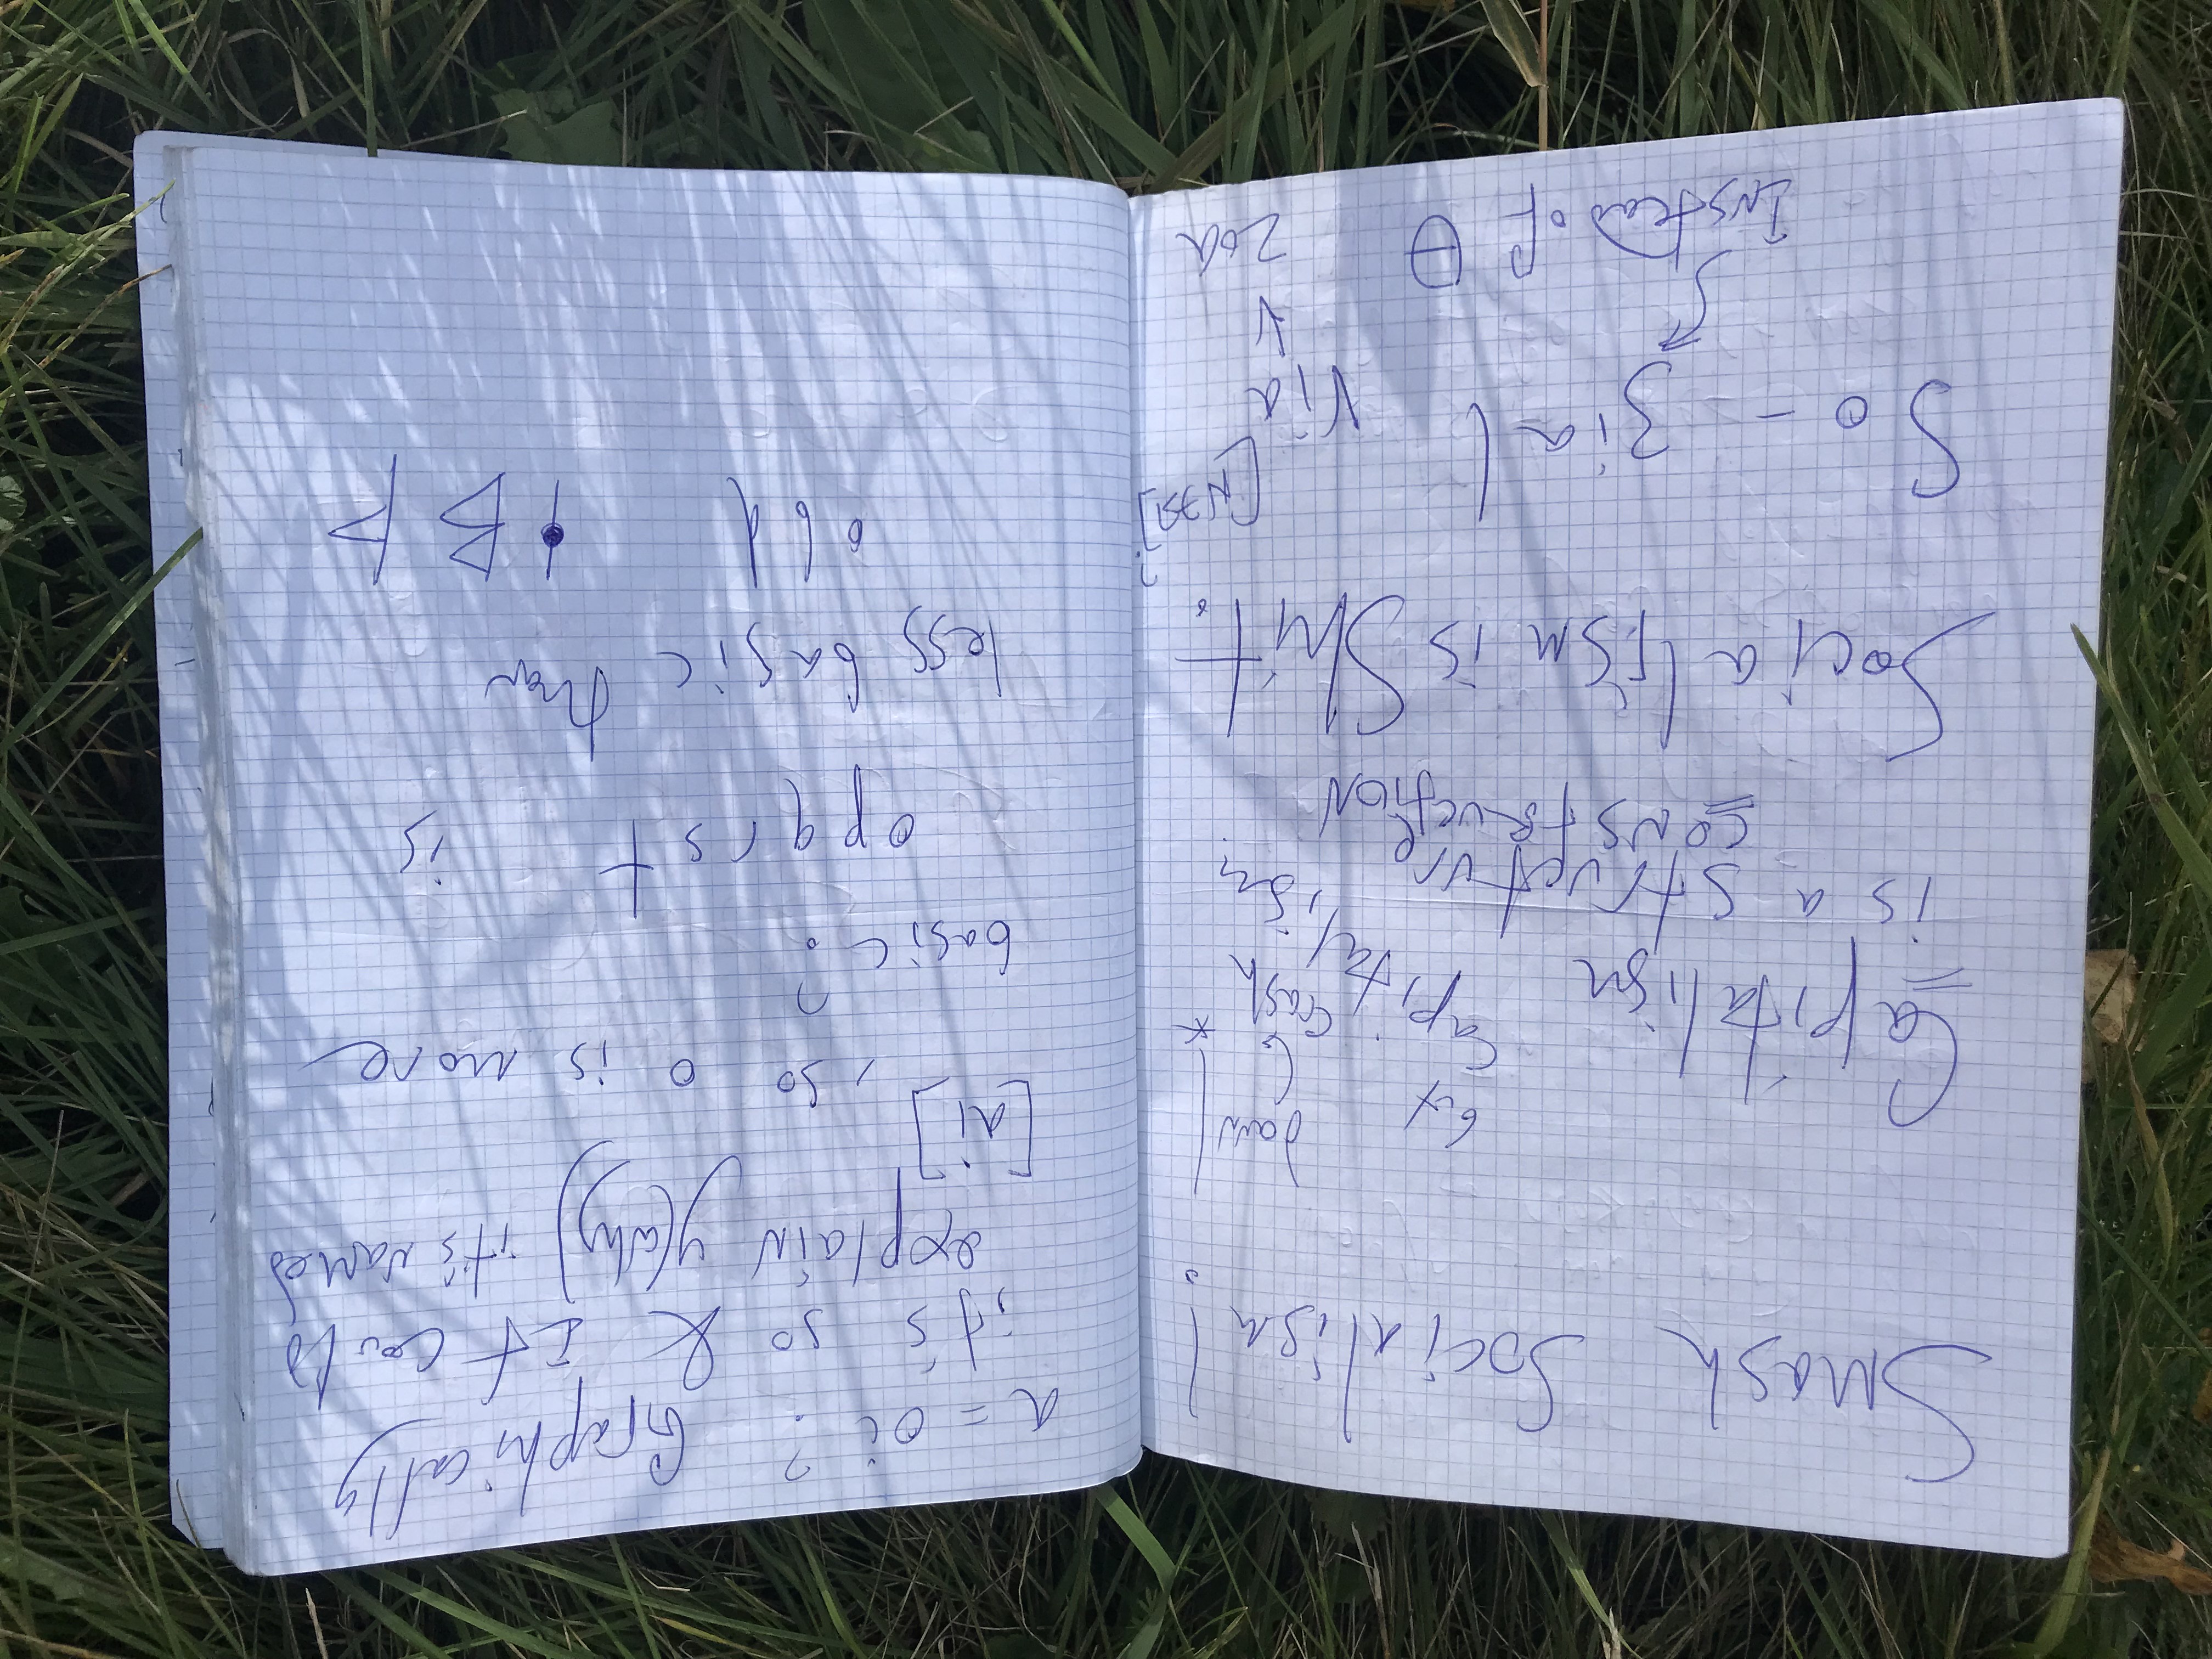 Smash Socialism!
Capitalism
is a structure
construction
but
Capitalism
down
crash
Socialism is Shit.
So-zial via
Instead of θ
zoa
a = oi? Graphically
it's so & It could
explain y(why) it's named
[ai], so o is more
basic?
opqrst is
less basic than
obd